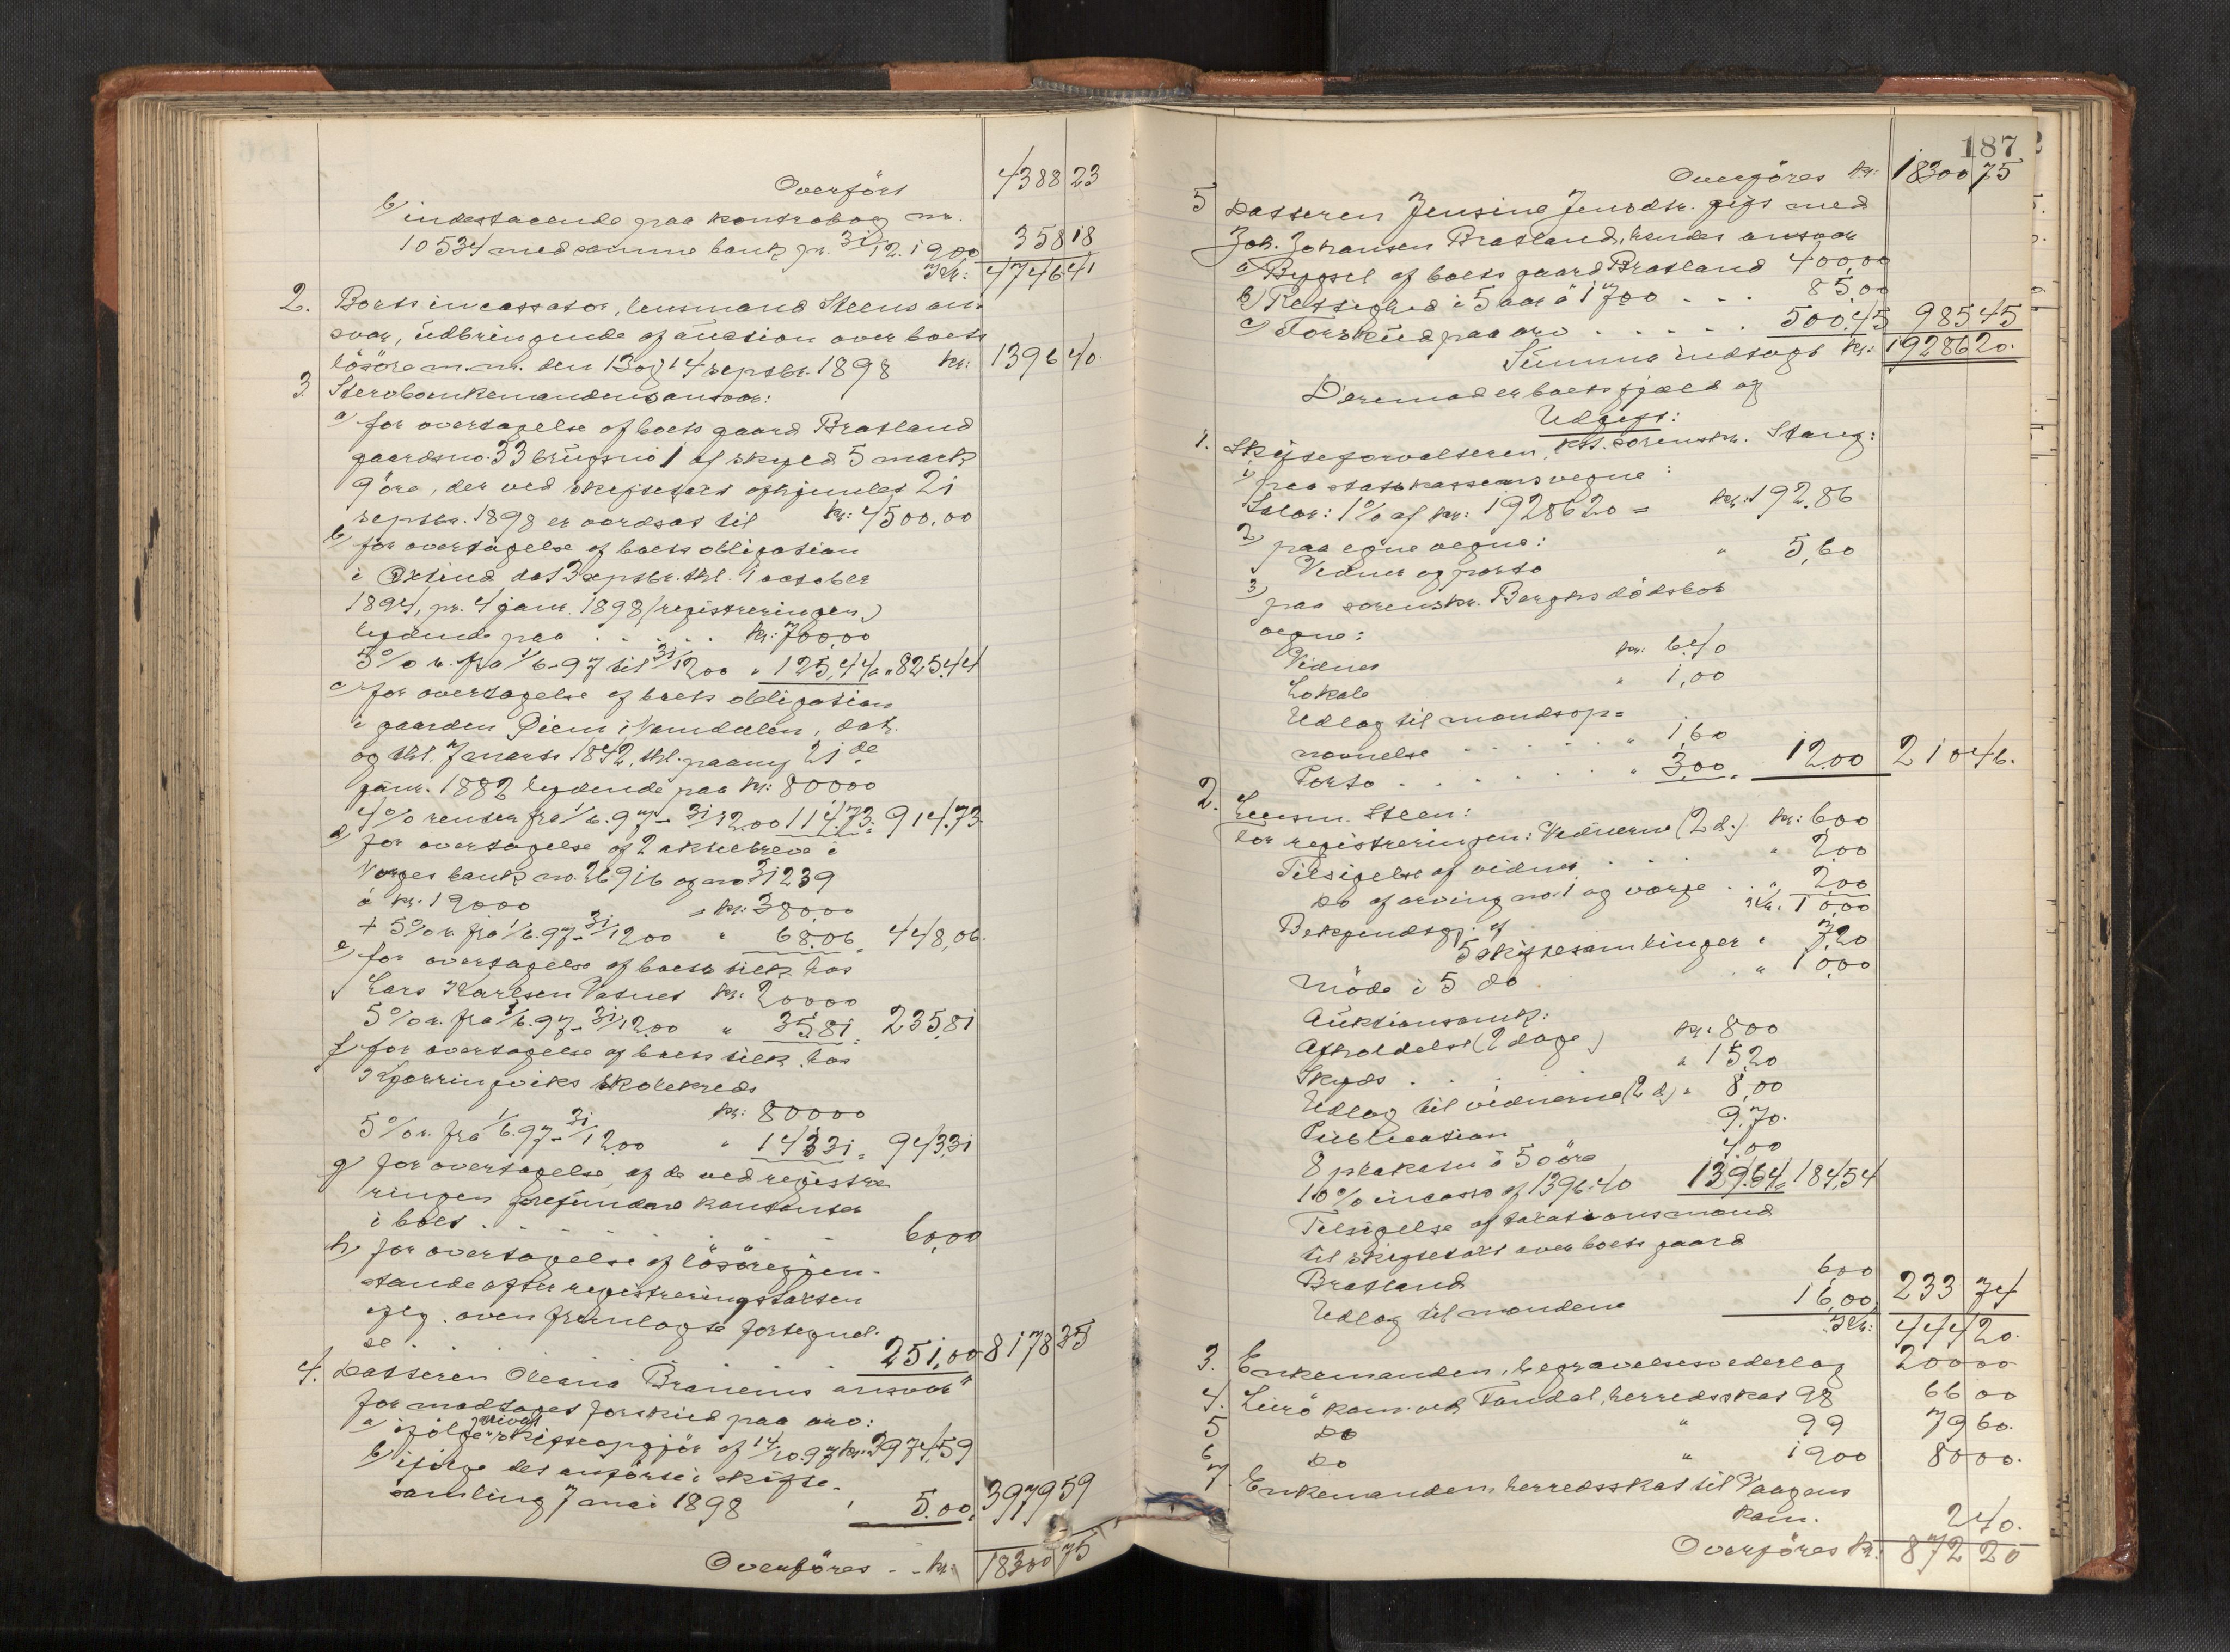 Overført 4388 23
b) indestaaende paa kontrabog nr.
10534 med samme bank pr. 31/12.1900 358 18
Kr: 4746 41
2. Boets incassator, lensmand Steens an-
svar, udbringende af auction over boets
lösöre m.m. den 13 og 14 septbr. 1898 kr: 1396 40
3. Stervboenkemandens ansvar:
a) for overtagelse af boets gaard Bratland
gaardsno. 33 brugsno 1 af skyld 5 mark
9 öre, der ved skiftetaxt afhjemlet 21
septbr. 1898 er værdsat til kr: 4500.00
b) for overtagelse af boets obligation
i dat 3 septbr. thl. 1 october
1894, pr. 4 janr. 1898 (registreringen)
lydende paa . . . . . kr: 700,00
5% r. fra 1/6-97 til 31/12 00 " 125,44 = " 825.44
c) for overtagelse af boets obligation
i gaarden Diem i Namdalen, dat.
og thl. 7 marts 1842, thl. paany 21de
janr. 1882 lydende paa kr: 800 00
4% renter fra 1/6.97 - 31/12.00 114.73 = 914.73
d) for overtagelse af 2 aktiebreve i
Norges bank no. 26916 og no 31239
á kr. 190 00 = kr: 380,00
+ 5% r. fra 1/6.97 - 31/12 00 " 68.06 = 448,06.
e) for overtagelse af boets tilk. hos
Lars Karlsen Vatnet kr: 200 00
5% r. fra 1/6.97 - 31/12.00 " 35.81 = 235.81
f) for overtagelse af boets tilk. hos
Kjorringviks skolekreds
kr: 800 00
5% r. fra 1/6.97 - 31/12.00 " 143 31 = 943.31
g) for overtagelse af de ved registre-
ringen forefundne kontanter
i boet . . . . . . 60,00
h) for overtagelse af lösöregjen-
stande efter registreringstaxten
jfg. oven fremlagte fortegnel-
se . . . . . . 251,00 8178 35
4. Datteren Oleana Branems ansvar
for modtaget forskud paa arv:
a) ifölge privat skifteopgjör af 14/10.97 kr: 3974,59
b) ifölge det anförte i skifte-
samling 7 mai 1898 " 5.00 = 3979 59
Overföres - - kr: 18300 75
187
Overföres kr: 18300 75
5 Datteren Jensine Jensdtr. gift med
Joh. Johansen Bratland, hendes ansvar
a) Bygsel af boets gaard Bratland 400,00
b) Rettighed i 5 aar á 17.00 . . . 85,00
c) Forskud paa arv . . . . . 500.45 985 45
Summa indtægt kr: 19286 20.
Derimod er boets gjæld og
Udgift:
1. Skifteforvalteren, kst. sorenskr. Stang:
1) paa statskassens vegne:
Salær: 1% af kr: 19286 20 = kr: 192.86
2) paa egne vegne:
Vidner og porto " 5,60
3) paa sorenskr. Berghs dödsbos
vegne:
Vidner kr: 6.40
Lokale " 1,00
Udlæg til mandsop-
nævnelse . . . . . " 1,60
Porto . . . . . . " 3.00 = 12.00 210 46.
2. Lensm. Steen:
For registreringen: Vidnerne (2 d.) kr: 6 00
Tilsigelse af vidner . . . " 2,00
Do af arving no. 1 og værge . . " 2,00
Kr. 10,00
Bekjendtgj. af
5 skiftesamlinger " 7,20
Möde i 5 do . " 10,00
Auktionsomk:
Afholdelse (2 dage) kr: 8 00
Skyds . . . . " 15,20
Udlæg til vidnerne (2 d.) " 8,00
Publication 9.70.
8 plakater á 50 öre 4.00
10% incasso af 1396.40 139.64 = 184,54
Tilsigelse af taxationsmænd
til skiftetaxt over boets gaard
Bratland 6 00
Udlæg til mændene 16,00 233 74
Kr: 444 20.
3. Enkemanden, begravelsesvederlag 200 00
4. Lurö kom. ved Tondal, herredsskat 98 66 00
5 Do " 99 79 60.
6 Do " 1900 80 00.
7 Enkemanden, herredsskat til Vaagens
kom. 2 40.
Overföres kr: 872 20